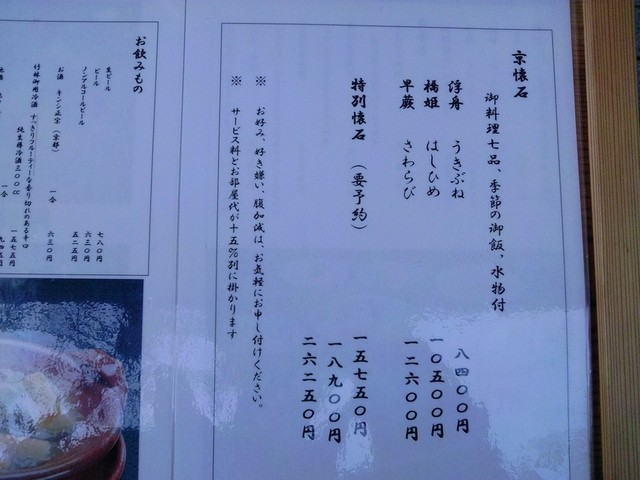 京懐石
御料理七品、季節の御飯、水物付
浮舟 うきぶね 八四〇〇円
橋姫 はしひめ 一〇五〇〇円
早蕨 さわらび 一二六〇〇円
特別懐石 (要予約) 一五七五〇円
一八九〇〇円
二六二五〇円
※ お好み、好き嫌い、腹加減は、お気軽にお申し付けください。
※ サービス料とお部屋代が十五%別に掛かります
お飲みもの
生ビール 七八〇円
ビール 六三〇円
ノンアルコールビール 五二五円
お酒 キンシ正宗 (京都) 一合 六三〇円
竹林御用冷酒 すっきりフルーティーな香り切れのある辛口
純生酵冷酒三〇〇cc 一五七五円
一合 九四五円